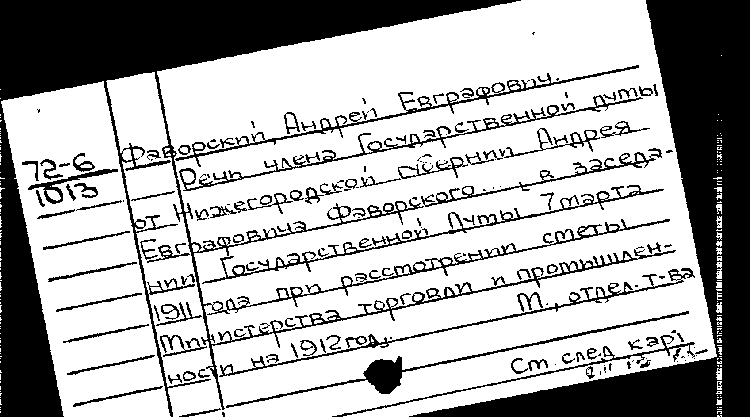 72-6
1013
Фаворский, Андрей Евграфович.
Речь члена Государственной думы
от Нижегородской губернии Андрея
Евграфовича Фаворского... в заседа-
нии Государственной Думы 7 марта
1911 года при рассмотрении сметы
Министерства торговли и промышлен-
ности на 1912 год.
М., отдел. т-ва
См след карт